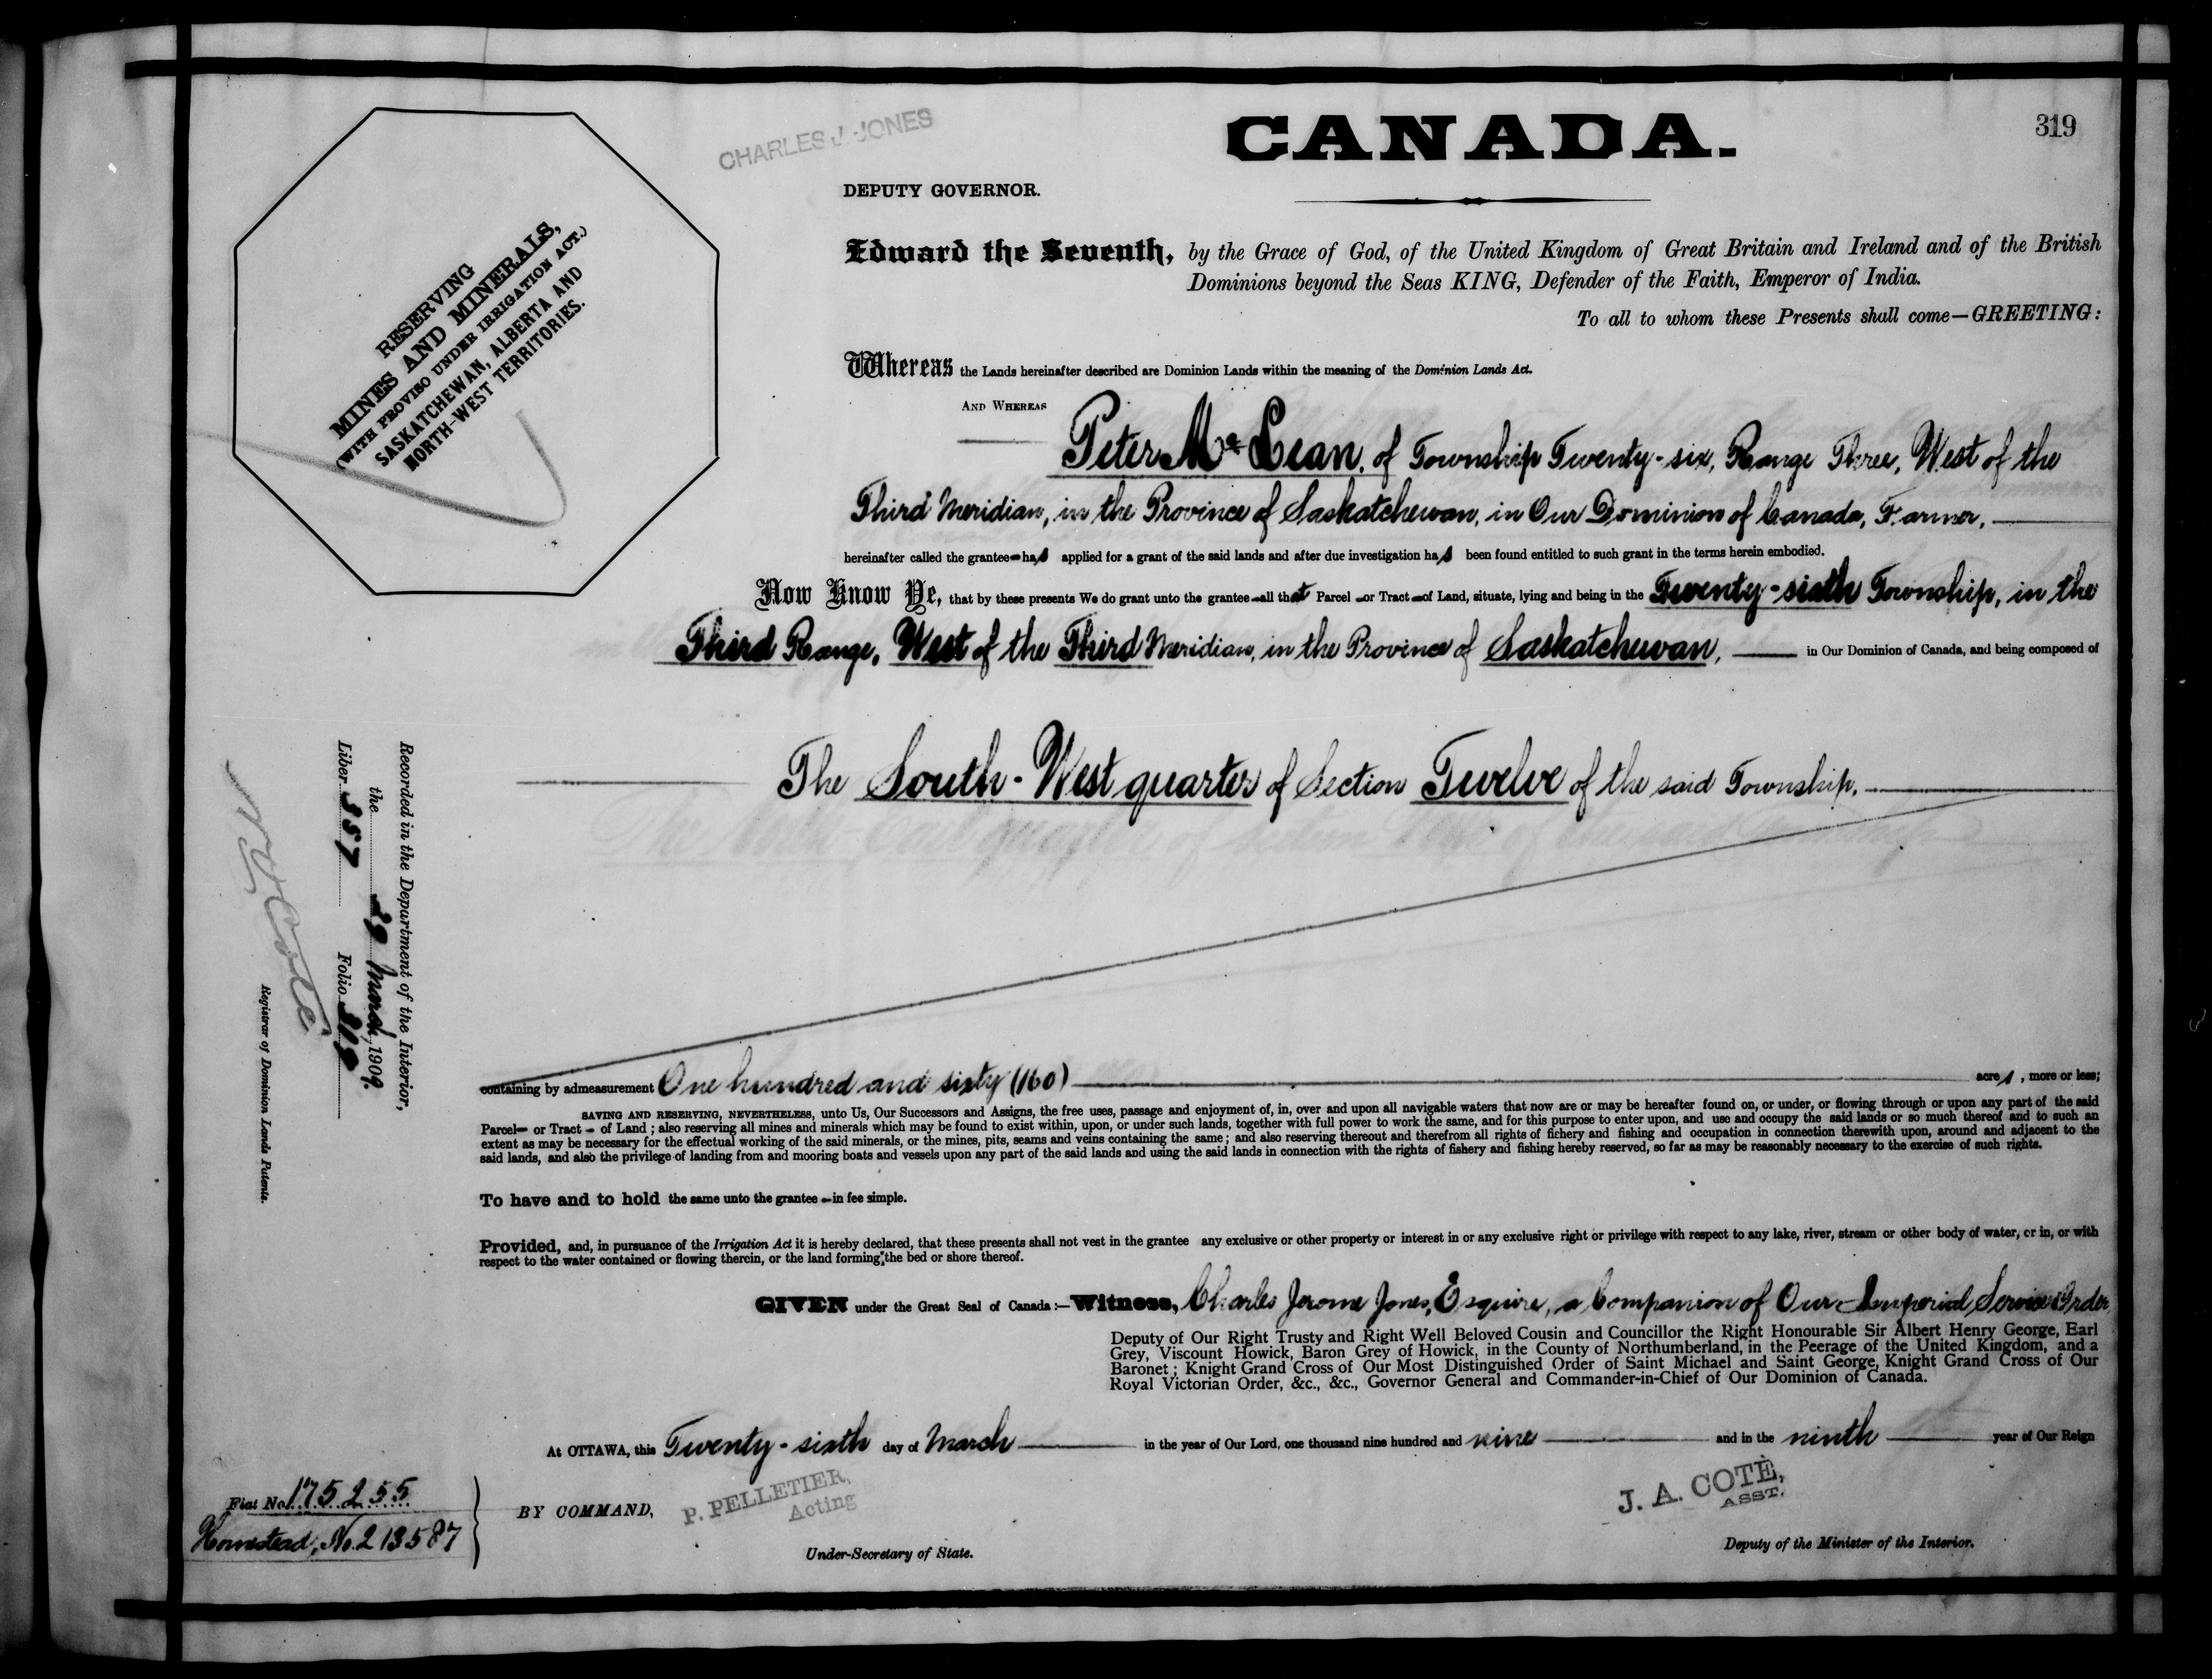 319
CHARLES J. JONES
CANADA.
DEPUTY GOVERNOR.
RESERVING
MINES AND MINERALS,
(WITH PROVISO UNDER IRRIGATION ACT.)
SASKATCHEWAN, ALBERTA AND
NORTH-WEST TERRITORIES.
Edward the Seventh, by the Grace of God, of the United Kingdom of Great Britain and Ireland and of the British
Dominions beyond the Seas KING, Defender of the Faith, Emperor of India.
To all to whom these Presents shall come—GREETING:
Whereas the Lands hereinafter described are Dominion Lands within the meaning of the Dominion Lands Act.
AND WHEREAS
Peter McLean, of Township Twenty-six, Range Three, West of the
Third Meridian, in the Province of Saskatchewan, in Our Dominion of Canada, Farmer,
hereinafter called the grantee has applied for a grant of the said lands and after due investigation has been found entitled to such grant in the terms herein embodied.
Now Know Ye, that by these presents We do grant unto the grantee all that Parcel or Tract of Land, situate, lying and being in the Twenty-sixth Township, in the
Third Range, West of the Third Meridian, in the Province of Saskatchewan, in Our Dominion of Canada, and being composed of
The South-West quarter of Section Twelve of the said Township.
containing by admeasurement One hundred and sixty (160) acres, more or less;
SAVING AND RESERVING, NEVERTHELESS, unto Us, Our Successors and Assigns, the free uses, passage and enjoyment of, in, over and upon all navigable waters that now are or may be hereafter found on, or under, or flowing through or upon any part of the said
Parcel or Tract of Land; also reserving all mines and minerals which may be found to exist within, upon, or under such lands, together with full power to work the same, and for this purpose to enter upon, and use and occupy the said lands or so much thereof and to such an
extent as may be necessary for the effectual working of the said minerals, or the mines, pits, seams and veins containing the same; and also reserving thereout and therefrom all rights of fichery and fishing and occupation in connection therewith upon, around and adjacent to the
said lands, and also the privilege of landing from and mooring boats and vessels upon any part of the said lands and using the said lands in connection with the rights of fishery and fishing hereby reserved, so far as may be reasonably necessary to the exercise of such rights.
To have and to hold the same unto the grantee in fee simple.
Provided, and, in pursuance of the Irrigation Act it is hereby declared, that these presents shall not vest in the grantee any exclusive or other property or interest in or any exclusive right or privilege with respect to any lake, river, stream or other body of water, or in, or with
respect to the water contained or flowing therein, or the land forming the bed or shore thereof.
GIVEN under the Great Seal of Canada:—Witness, Charles Jerome Jones, Esquire, a Companion of Our Imperial Service Order,
Deputy of Our Right Trusty and Right Well Beloved Cousin and Councillor the Right Honourable Sir Albert Henry George, Earl
Grey, Viscount Howick, Baron Grey of Howick, in the County of Northumberland, in the Peerage of the United Kingdom, and a
Baronet; Knight Grand Cross of Our Most Distinguished Order of Saint Michael and Saint George, Knight Grand Cross of Our
Royal Victorian Order, &c., &c., Governor General and Commander-in-Chief of Our Dominion of Canada.
At OTTAWA, this Twenty-sixth day of March in the year of Our Lord, one thousand nine hundred and nine and in the ninth year of Our Reign
BY COMMAND,
P. PELLETIER,
Acting
Under-Secretary of State.
J. A. COTÉ,
ASST.
Deputy of the Minister of the Interior.
Fiat No. 175255
Homestead, No. 213587
Recorded in the Department of the Interior,
the 29 March, 1909.
Liber 357 Folio 319
N O Coté
Registrar of Dominion Lands Patents.